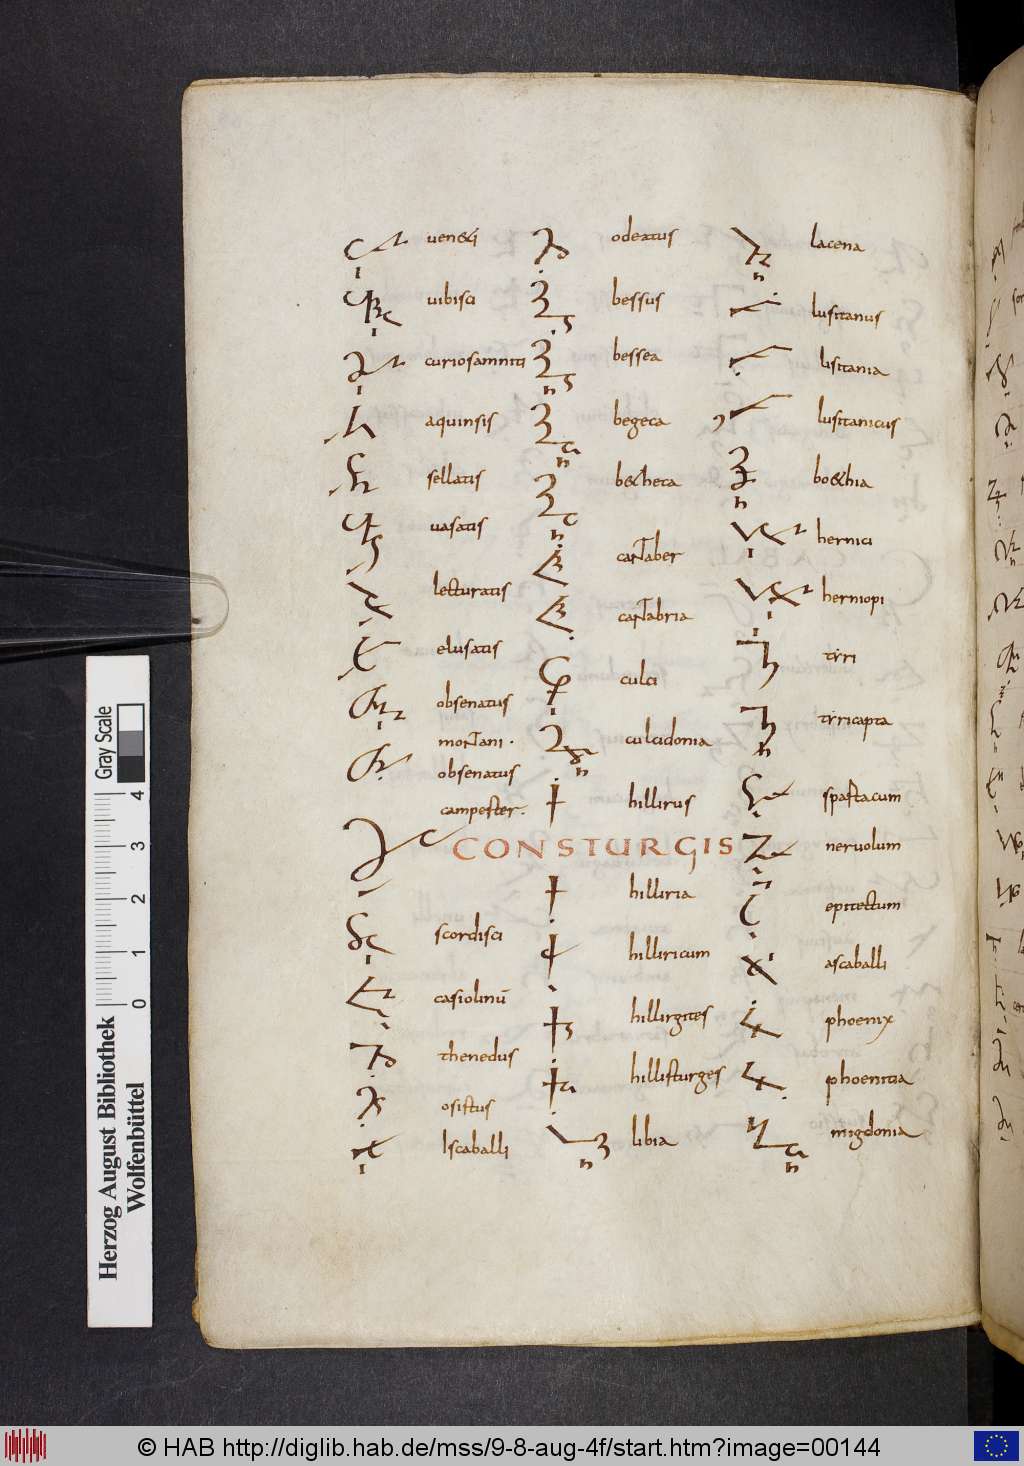 uen&i
uibisci
curiosamniti
aquinsis
sellatis
uasatis
lecturatis
elusatis
obsenatus
montani ·
obsenatus
campester ·
CONSTURGIS
scordisci
casiolinū
thenedus
osistus
lscaballi
odeatus
bessus
bessea
begeca
b&heca
cantaber
cantabria
culci
culcidonia
hillirus
hilliria
hilliricum
hillirgites
hillisturges
libia
lacena
lusitanus
lisitania
lusitanicus
bo&hia
hernici
herniopi
tiri
tiricapta
spastacum
neruolum
epitectum
ascaballi
phoenix
phoenitia
migdonia
Gray Scale
0 1 2 3 4
Herzog August Bibliothek
Wolfenbüttel
© HAB http://diglib.hab.de/mss/9-8-aug-4f/start.htm?image=00144